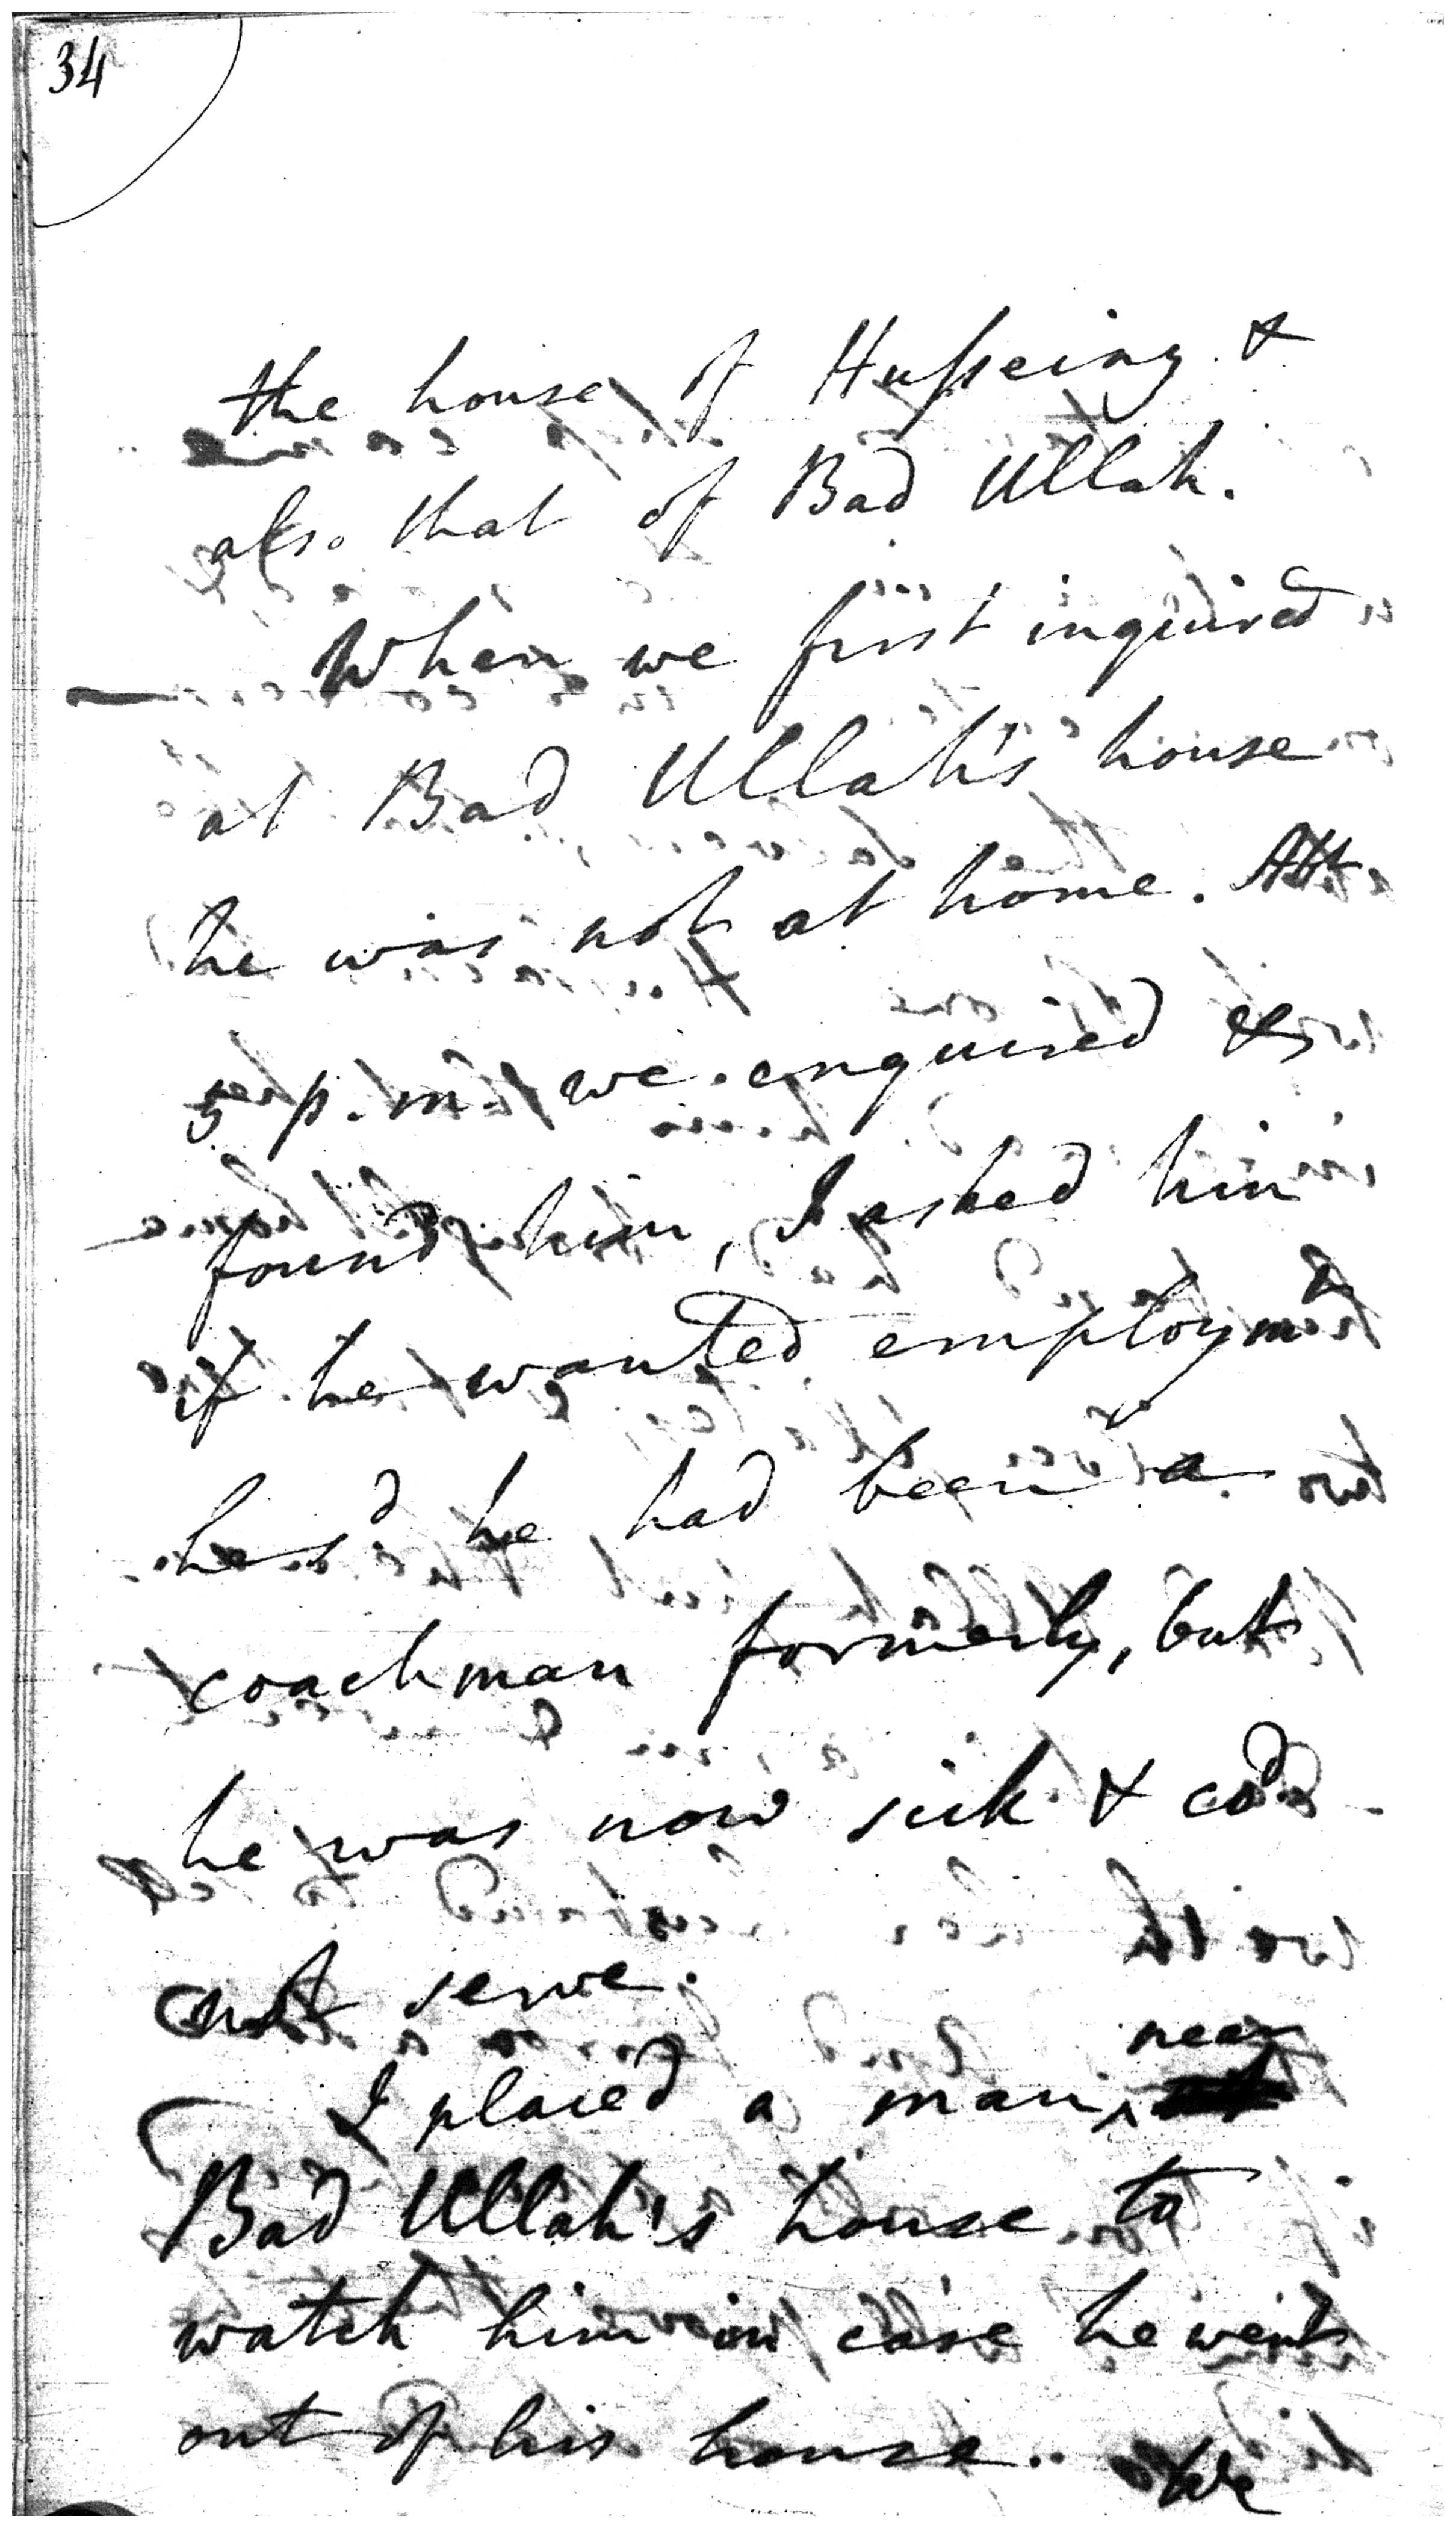 34
the house of Husseiny &
also that of Bad Ullah.
When we first inquired
at Bad Ullah's house
he was not at home. At
5 p.m. we enquired &
found him, I asked him
if he wanted employmt
he sd he had been a
coachman formerly, but
he was now sick & cod
not serve.
near
I placed a man
Bad Ullah's house to
watch him in case he went
out of his house. We